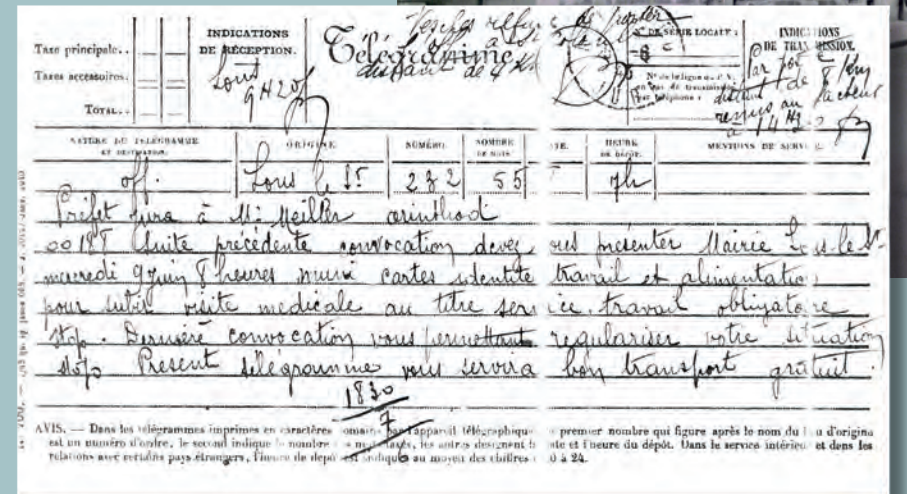 Taxe principale..
Taxes accessoires.
TOTAL..
INDICATIONS
DE RÉCEPTION.
Lons
9H20
Télégramme
refuse de
distant de 4
N° DE SÉRIE LOCALE :
INDICATIONS
DE TRANSMISSION.
Par
distant de 8
remis au facteur
à 14H
NATURE DU TÉLÉGRAMME
ET DESTINATION.
ORIGINE.
NUMÉRO.
NOMBRE
DE MOTS
HEURE
DE DÉPÔT.
MENTIONS DE SERVICE.
off.
Lons le Sr
232
55
7h
Préfet Jura à Mr Meiller arinthod
00188 Suite précédente convocation devez vous présenter Mairie Lons-le-Sr
mercredi 9 Juin 8 heures muni cartes identité travail et alimentation
pour subir visite medicale au titre service travail obligatoire
stop. Dernière convocation vous permettant regulariser votre situation
stop Present télégramme vous servira bon transport gratuit.
1830
7
6
AVIS. — Dans les télégrammes imprimés en caractères romains par l'appareil télégraphique premier nombre qui figure après le nom du lieu d'origine
est un numéro d'ordre, le second indique le nombre de mots taxés, les autres désignent la date et l'heure du dépôt. Dans le service intérieur et dans les
relations avec certains pays étrangers, l'heure de dépôt est indiquée au moyen des chiffres 0 à 24.